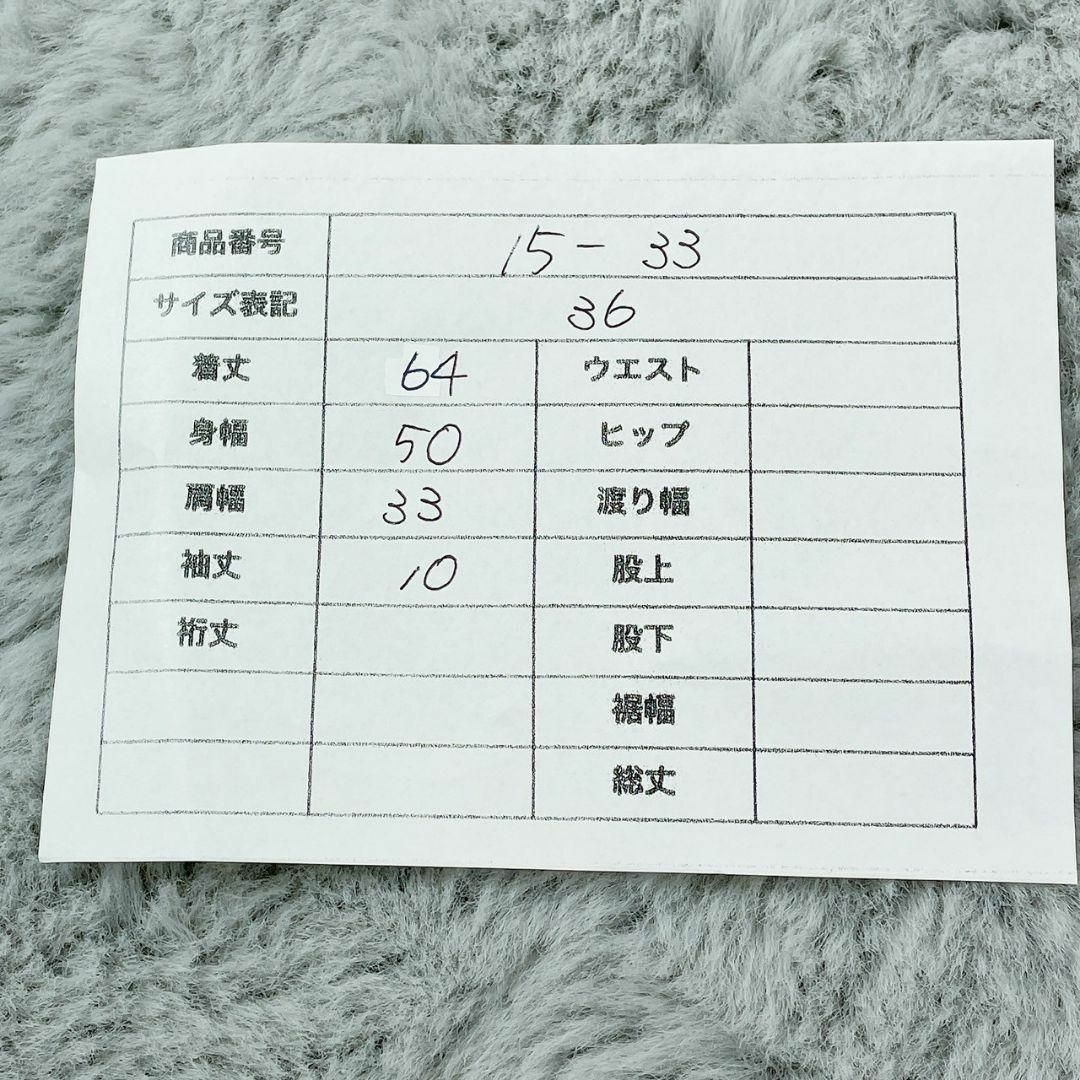 商品番号 15-33
サイズ表記 36
着丈 64 ウエスト
身幅 50 ヒップ
肩幅 33 渡り幅
袖丈 10 股上
裄丈 股下
裾幅
総丈